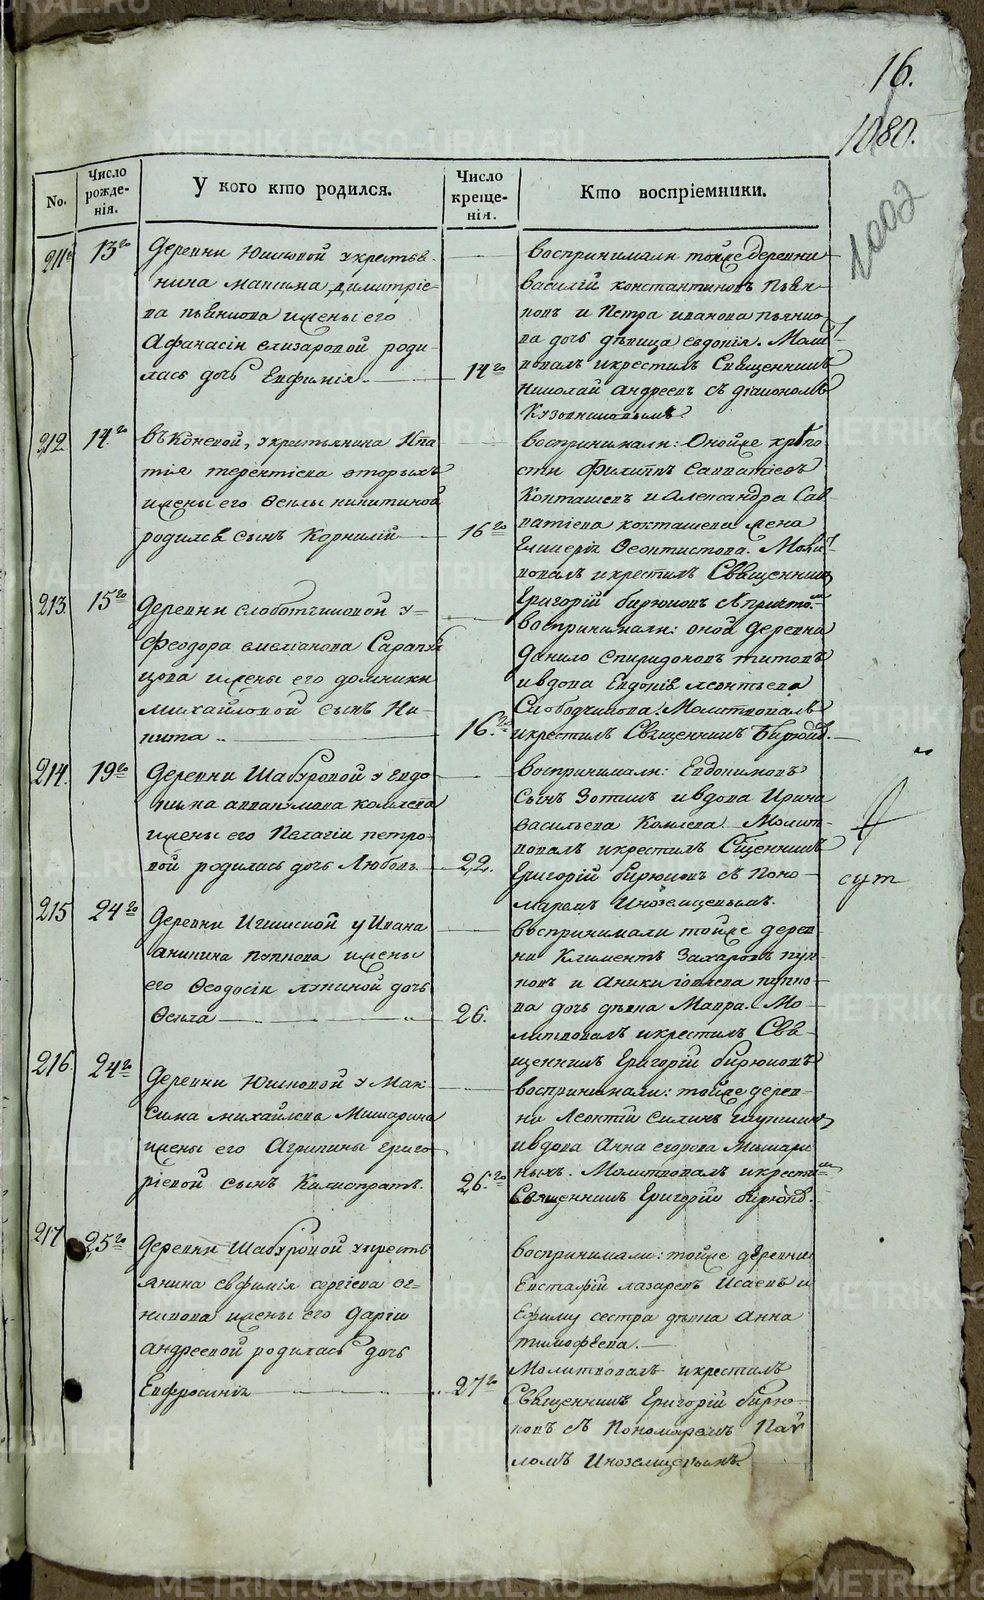 16.
1080.
1002
No.
Число рожде-
нія.
У кого кто родился.
Число креще-
нія.
Кто воспріемники.
211
13го
Деревни Юшковой у крестья-
нина максима димитріе-
ва пьянкова и жены его
Афанасіи елизаровой роди-
лась дочь Евфимія.
14го
воспринимали тойже деревни
василій константиновъ Пьян-
ковъ и Петра иванова пьянко-
ва дочь дѣвица евдокія. Моли-
твовалъ и крестилъ Священникъ
Николай андреевъ съ діакономъ
Кузовниковымъ
212
14го
въ Коневой, у крестьянина Ипа-
тія терентіева вторыхъ
и жены его Феклы никитиной
родился сынъ Корнилій
16го
воспринимали: Онойже крѣпо-
сти Филиппъ Савватіевъ
Кокташевъ и Александра Сав-
ватіева кокташева жена
Гликерія Феоктистова. Моли-
твовалъ и крестилъ Священникъ
Григорій бирюковъ
213.
15го
Деревни слоботчиковой у
Феодора емеліанова
и жены его домники
михайловой сынъ Ни-
кита
16.го
воспринимали: оной деревни
Данило Спиридоновъ титовъ
и вдова Евдокія леонтьева
Слободчикова. Молитвовалъ
и крестилъ Священникъ Бирюковъ.
214.
19го
Деревни Шабуровой у Евдо-
кима аввакумова комлева
и жены его Пелагіи петро-
вой родилась дочь Любовь
22.
воспринимали: Евдокимовъ
Сынъ Зотикъ и вдова Ирина
васильева Комлева. Молит-
вовалъ и крестилъ Сщенникъ
Григорій бирюковъ съ Поно-
маремъ Иноземцевымъ.
сут
215
24го
Деревни Игишской у Ивана
аникина и жены
его Феодосіи лупиной дочь
Фекла
26.
воспринимали тойже дерев-
ни Климентъ Захаровъ
и Аники
дочь дѣвка Мавра. Мо-
литвовалъ и крестилъ Свя-
щенникъ Григорій бирюковъ
216.
24го
Деревни Юшковой у Мак-
сима михайлева Мишарина
и жены его Агрипины григо-
ріевой сынъ Калистратъ.
26.го
воспринимали: тойже дерев-
ни Леонтій Силинъ
и вдова Анна егорова Мишари-
ныхъ. Молитвовалъ и крестилъ
Священникъ Григорій бирюковъ.
217
25го
Деревни Шабуровой у крест-
янина евфимія сергіева
и жены его Даріи
андреевой родилась дочь
Евфросинія
27го
воспринимали: тойже деревни
Евстафій лазаревъ Исаевъ и
сестра дѣвка анна
тимофѣева.
Молитвовалъ и крестилъ
Священникъ Григорій бирю-
ковъ съ Пономаремъ Пав-
ломъ Иноземцевымъ
METRIKI.GASO-URAL.RU